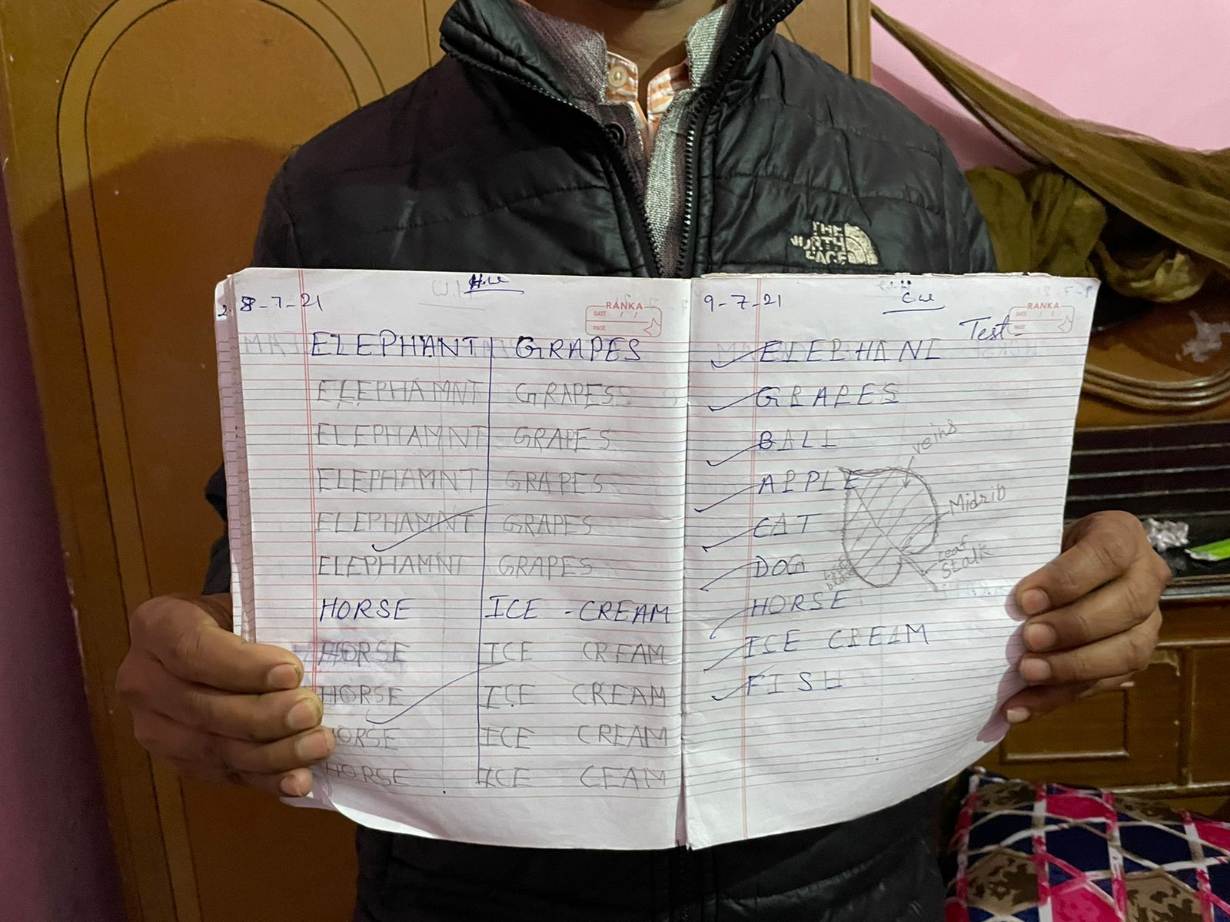 THE
NORTH
FACE
8-7-21
H.W
RANKA
DATE / /
PAGE
ELEPHANT GRAPES
ELEPHAMNT GRAPESS
ELEPHAMNT GRAPES
ELEPHAMNT GRAPES
ELEPHAMNT GRAPES
ELEPHAMNT GRAPES
HORSE ICE - CREAM
HORSE ICE CREAM
HORSE ICE CREAM
HORSE ICE CREAM
HORSE ICE CEAM
9-7-21
C.W
RANKA
DATE / /
PAGE
Test-
ELEPHANT
GRAPES
BALL
APPLE
CAT
DOG
HORSE
ICE CREAM
FISH
veins
Midrib
Leaf
Stalk